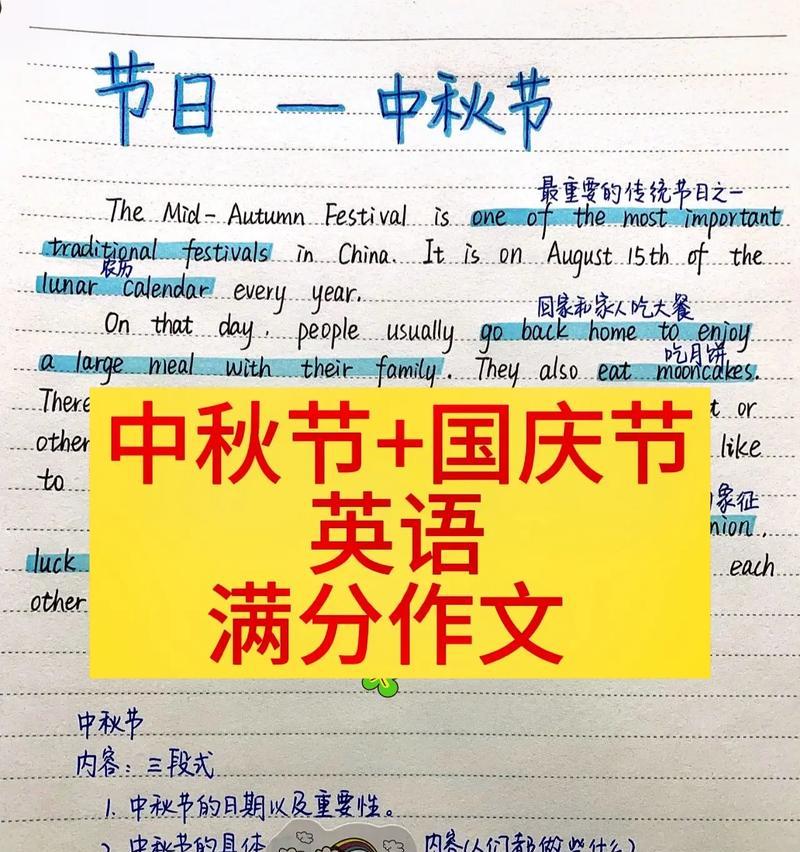 节日 — 中秋节
最重要的传统节日之一
The Mid-Autumn Festival is one of the most important
traditional festivals in China. It is on August 15th of the
农历
lunar calendar every year.
回家和家人吃大餐
On that day, people usually go back home to enjoy
吃月饼
a large meal with their family. They also eat mooncakes.
There or
other like
to
象征
luck each
other
中秋节+国庆节
英语
满分作文
中秋节
内容：三段式
1. 中秋节的日期以及重要性。
2. 中秋节的具体 内容(人们都做些什么)